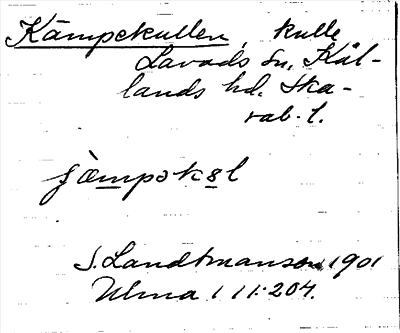 Kämpekullen, kulle
Lavads sn, Kål-
lands hd. Ska-
rab. l.
J. Landtmanson 1901
Ulma 111:204.